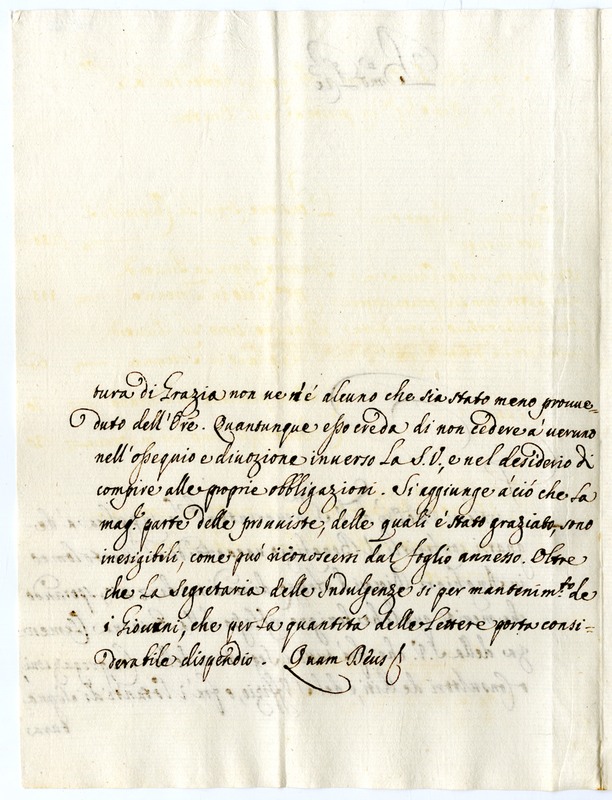 tura di Grazia non ve n'é alcuno che sia stato meno prouue-
duto dell'Ore. Quantunque esso creda di non cedere á veruno
nell'ossequio e diuozione inuerso La S.V., e nel desiderio di
compire alle proprie obbligazioni. Si aggiunge á ció che La
mag.r parte delle prouuiste, delle quali é stato graziato, sono
inesigibili, come puó riconoscersi dal foglio annesso. Oltre
che La Segretaria delle Indulgenze si per mantenim.to de
i Giouani, che per La quantitá delle Lettere porta consi-
derabile dispendio. Quam Deus